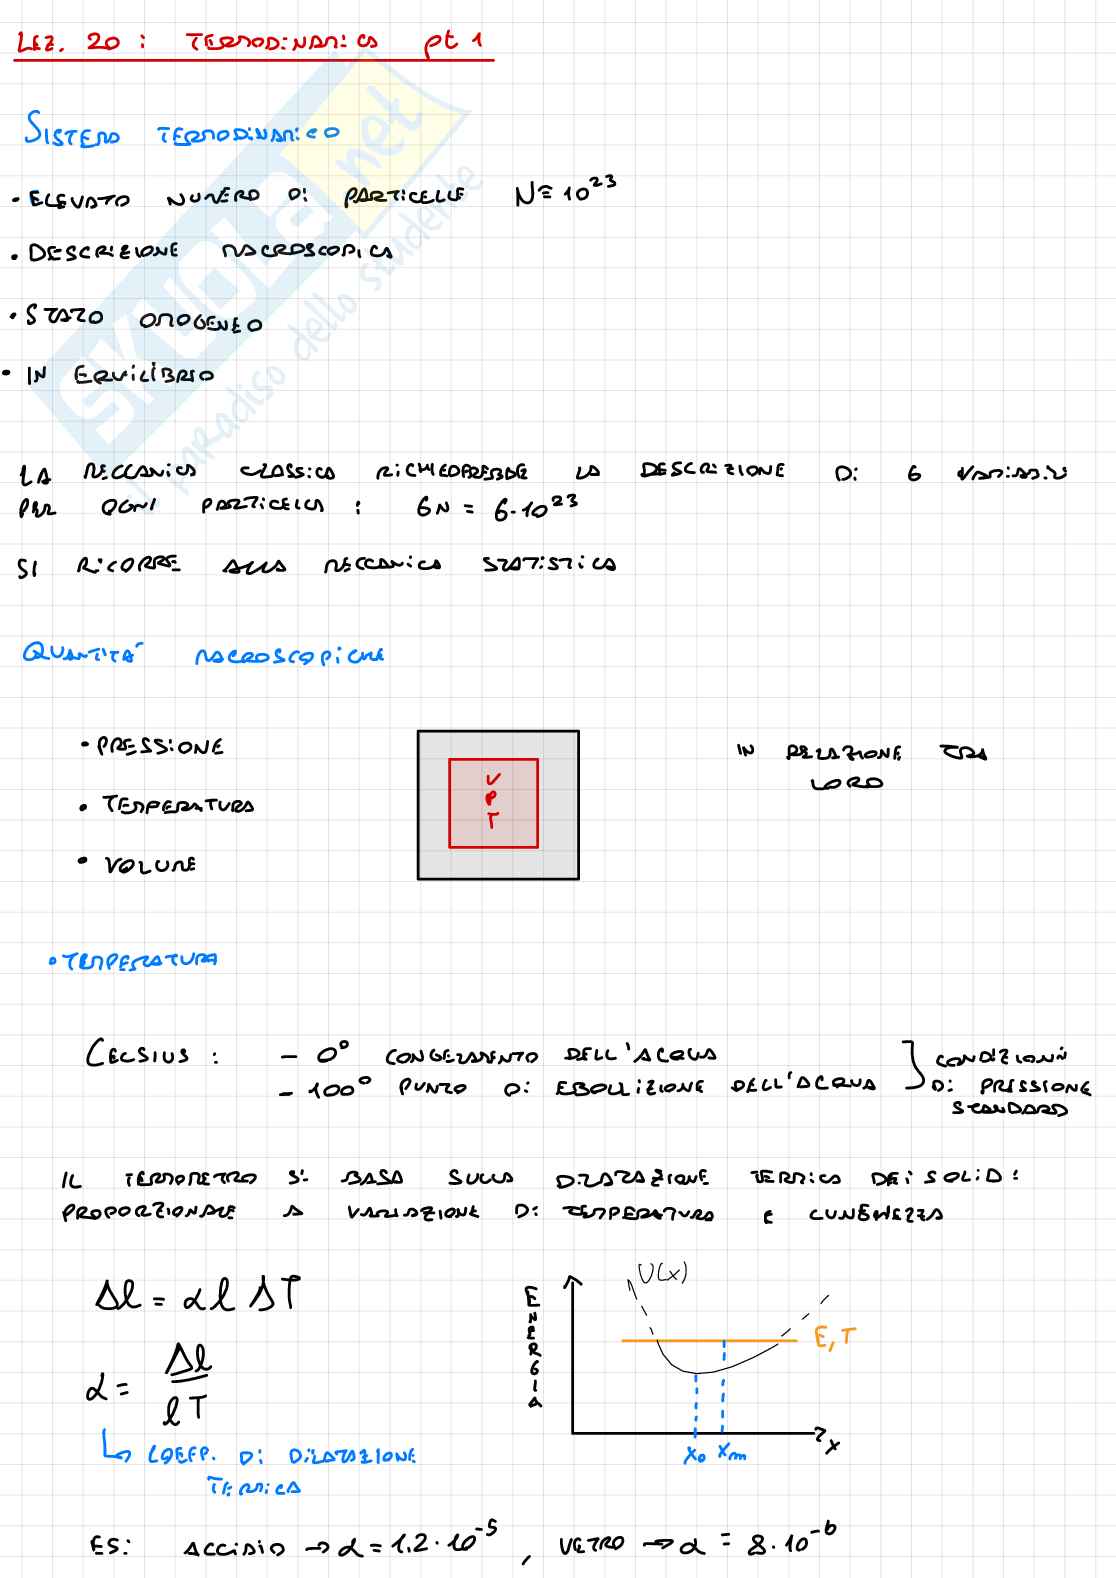 LEZ. 20 : TERMODINAMICA pt 1
SISTEMA TERMODINAMICO
• ELEVATO NUMERO DI PARTICELLE N≅10²³
• DESCRIZIONE MACROSCOPICA
• STATO OMOGENEO
• IN EQUILIBRIO
LA MECCANICA CLASSICA RICHIEDEREBBE LA DESCRIZIONE DI 6 VARIABILI
PER OGNI PARTICELLA : 6N = 6·10²³
SI RICORRE ALLA MECCANICA STATISTICA
QUANTITÁ MACROSCOPICHE
• PRESSIONE
• TEMPERATURA
• VOLUME
V
P
T
IN RELAZIONE TRA
LORO
• TEMPERATURA
CELSIUS : – 0° CONGELAMENTO DELL'ACQUA
– 100° PUNTO DI EBOLLIZIONE DELL'ACQUA
CONDIZIONI
DI PRESSIONE
STANDARD
IL TERMOMETRO SI BASA SULLA DILATAZIONE TERMICA DEI SOLIDI
PROPORZIONALE A VARIAZIONE DI TEMPERATURA E LUNGHEZZA
Δl = α l ΔT
α = Δl / l T
↳ COEFF. DI DILATAZIONE
TERMICA
ENERGIA
U(x)
E, T
x₀ xₘ
x
ES: ACCIAIO → α = 1,2·10⁻⁵ , VETRO → α = 8·10⁻⁶
SKUOLA.net
il paradiso dello studente